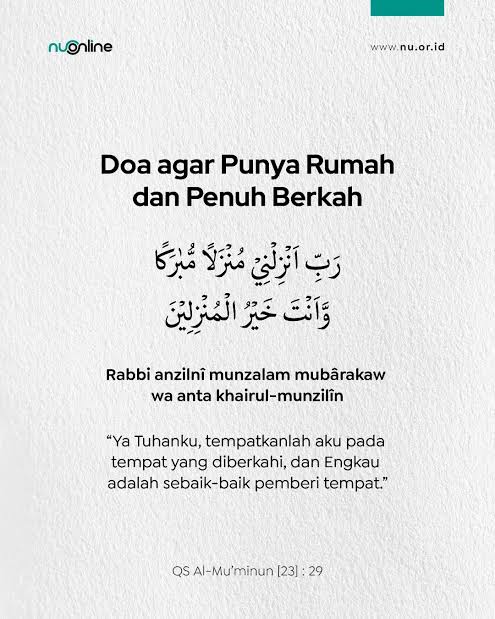 nuonline
www.nu.or.id
Doa agar Punya Rumah
dan Penuh Berkah
رَبِّ اَنْزِلْنِيْ مُنْزَلًا مُّبٰرَكًا
وَّاَنْتَ خَيْرُ الْمُنْزِلِيْنَ
Rabbi anzilnî munzalam mubârakaw
wa anta khairul-munzilîn
“Ya Tuhanku, tempatkanlah aku pada
tempat yang diberkahi, dan Engkau
adalah sebaik-baik pemberi tempat.”
QS Al-Mu’minun [23] : 29